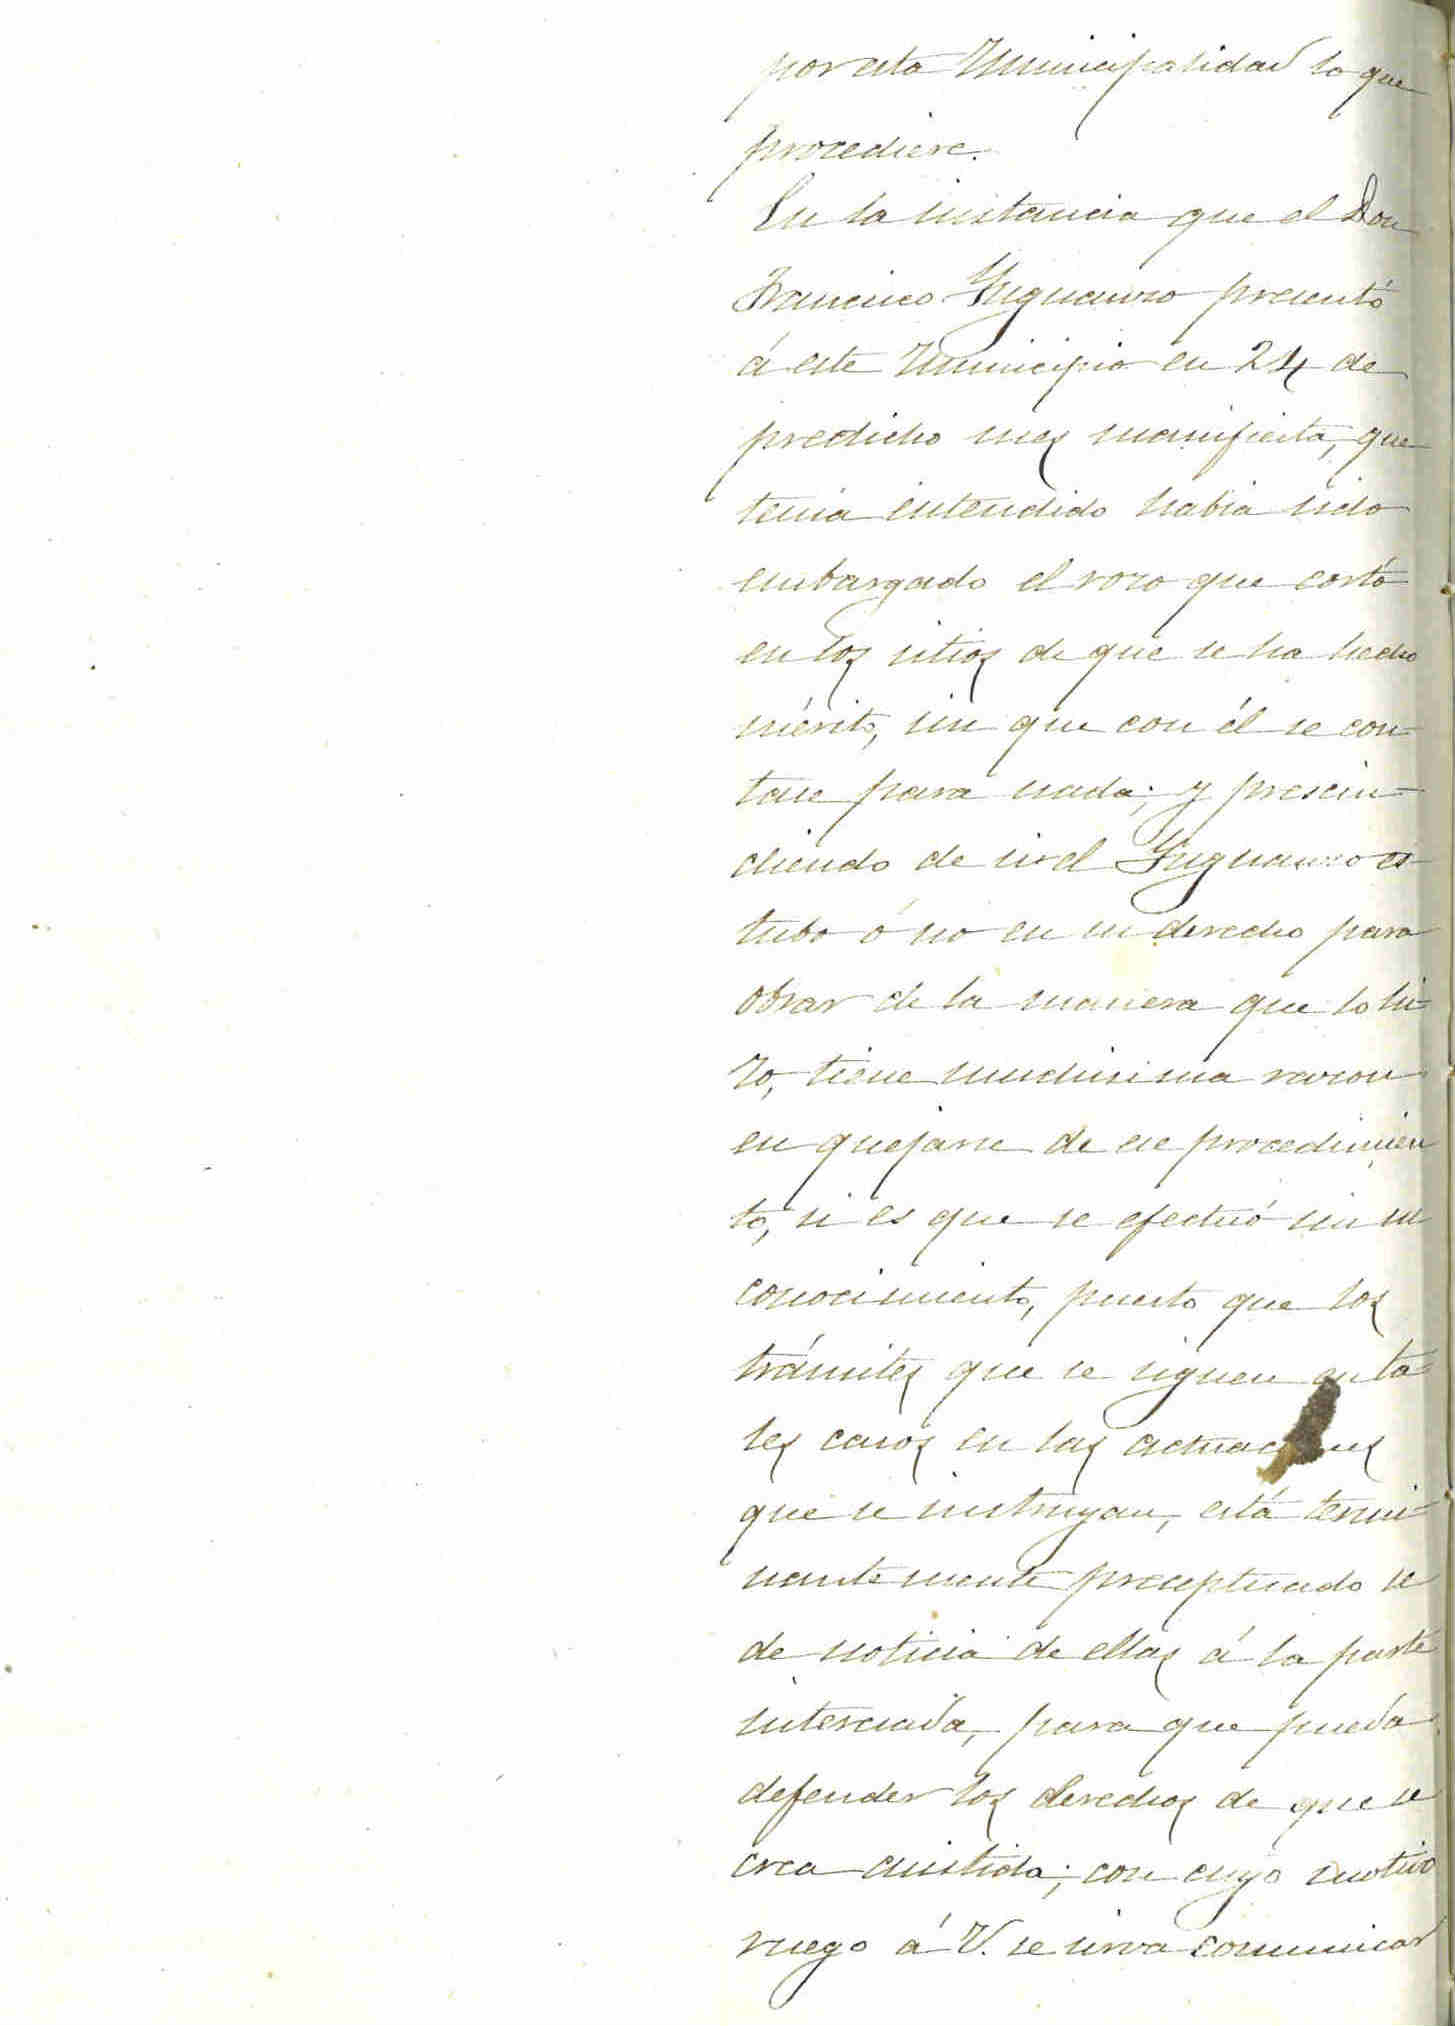 por esta Municipalidad lo que
procediere.
En la instancia que el Don
Francisco Inguanzo presentó
á este Municipio en 24 de
predicho mes manifiesta, que
tenia entendido habia sido
embargado el rozo que cortó
en los sitios de que se ha hecho
mérito, sin que con él se con-
tase para nada; y prescin-
diendo de si el Inguanzo es-
tubo ó no en su derecho para
obrar de la manera que lo hi-
zo, tiene muchisima razon
en quejarse de ese procedimien
to, si es que se efectuó sin su
conocimiento, puesto que los
trámites que se siguen en ta-
les casos en las actuaciones
que se instruyan, está termi-
nantemente preceptuado se
de noticia de ellas á la parte
interesada, para que pueda
defender los derechos de que se
crea asistida; con cuyo motivo
ruego á V. se sirva comunicar